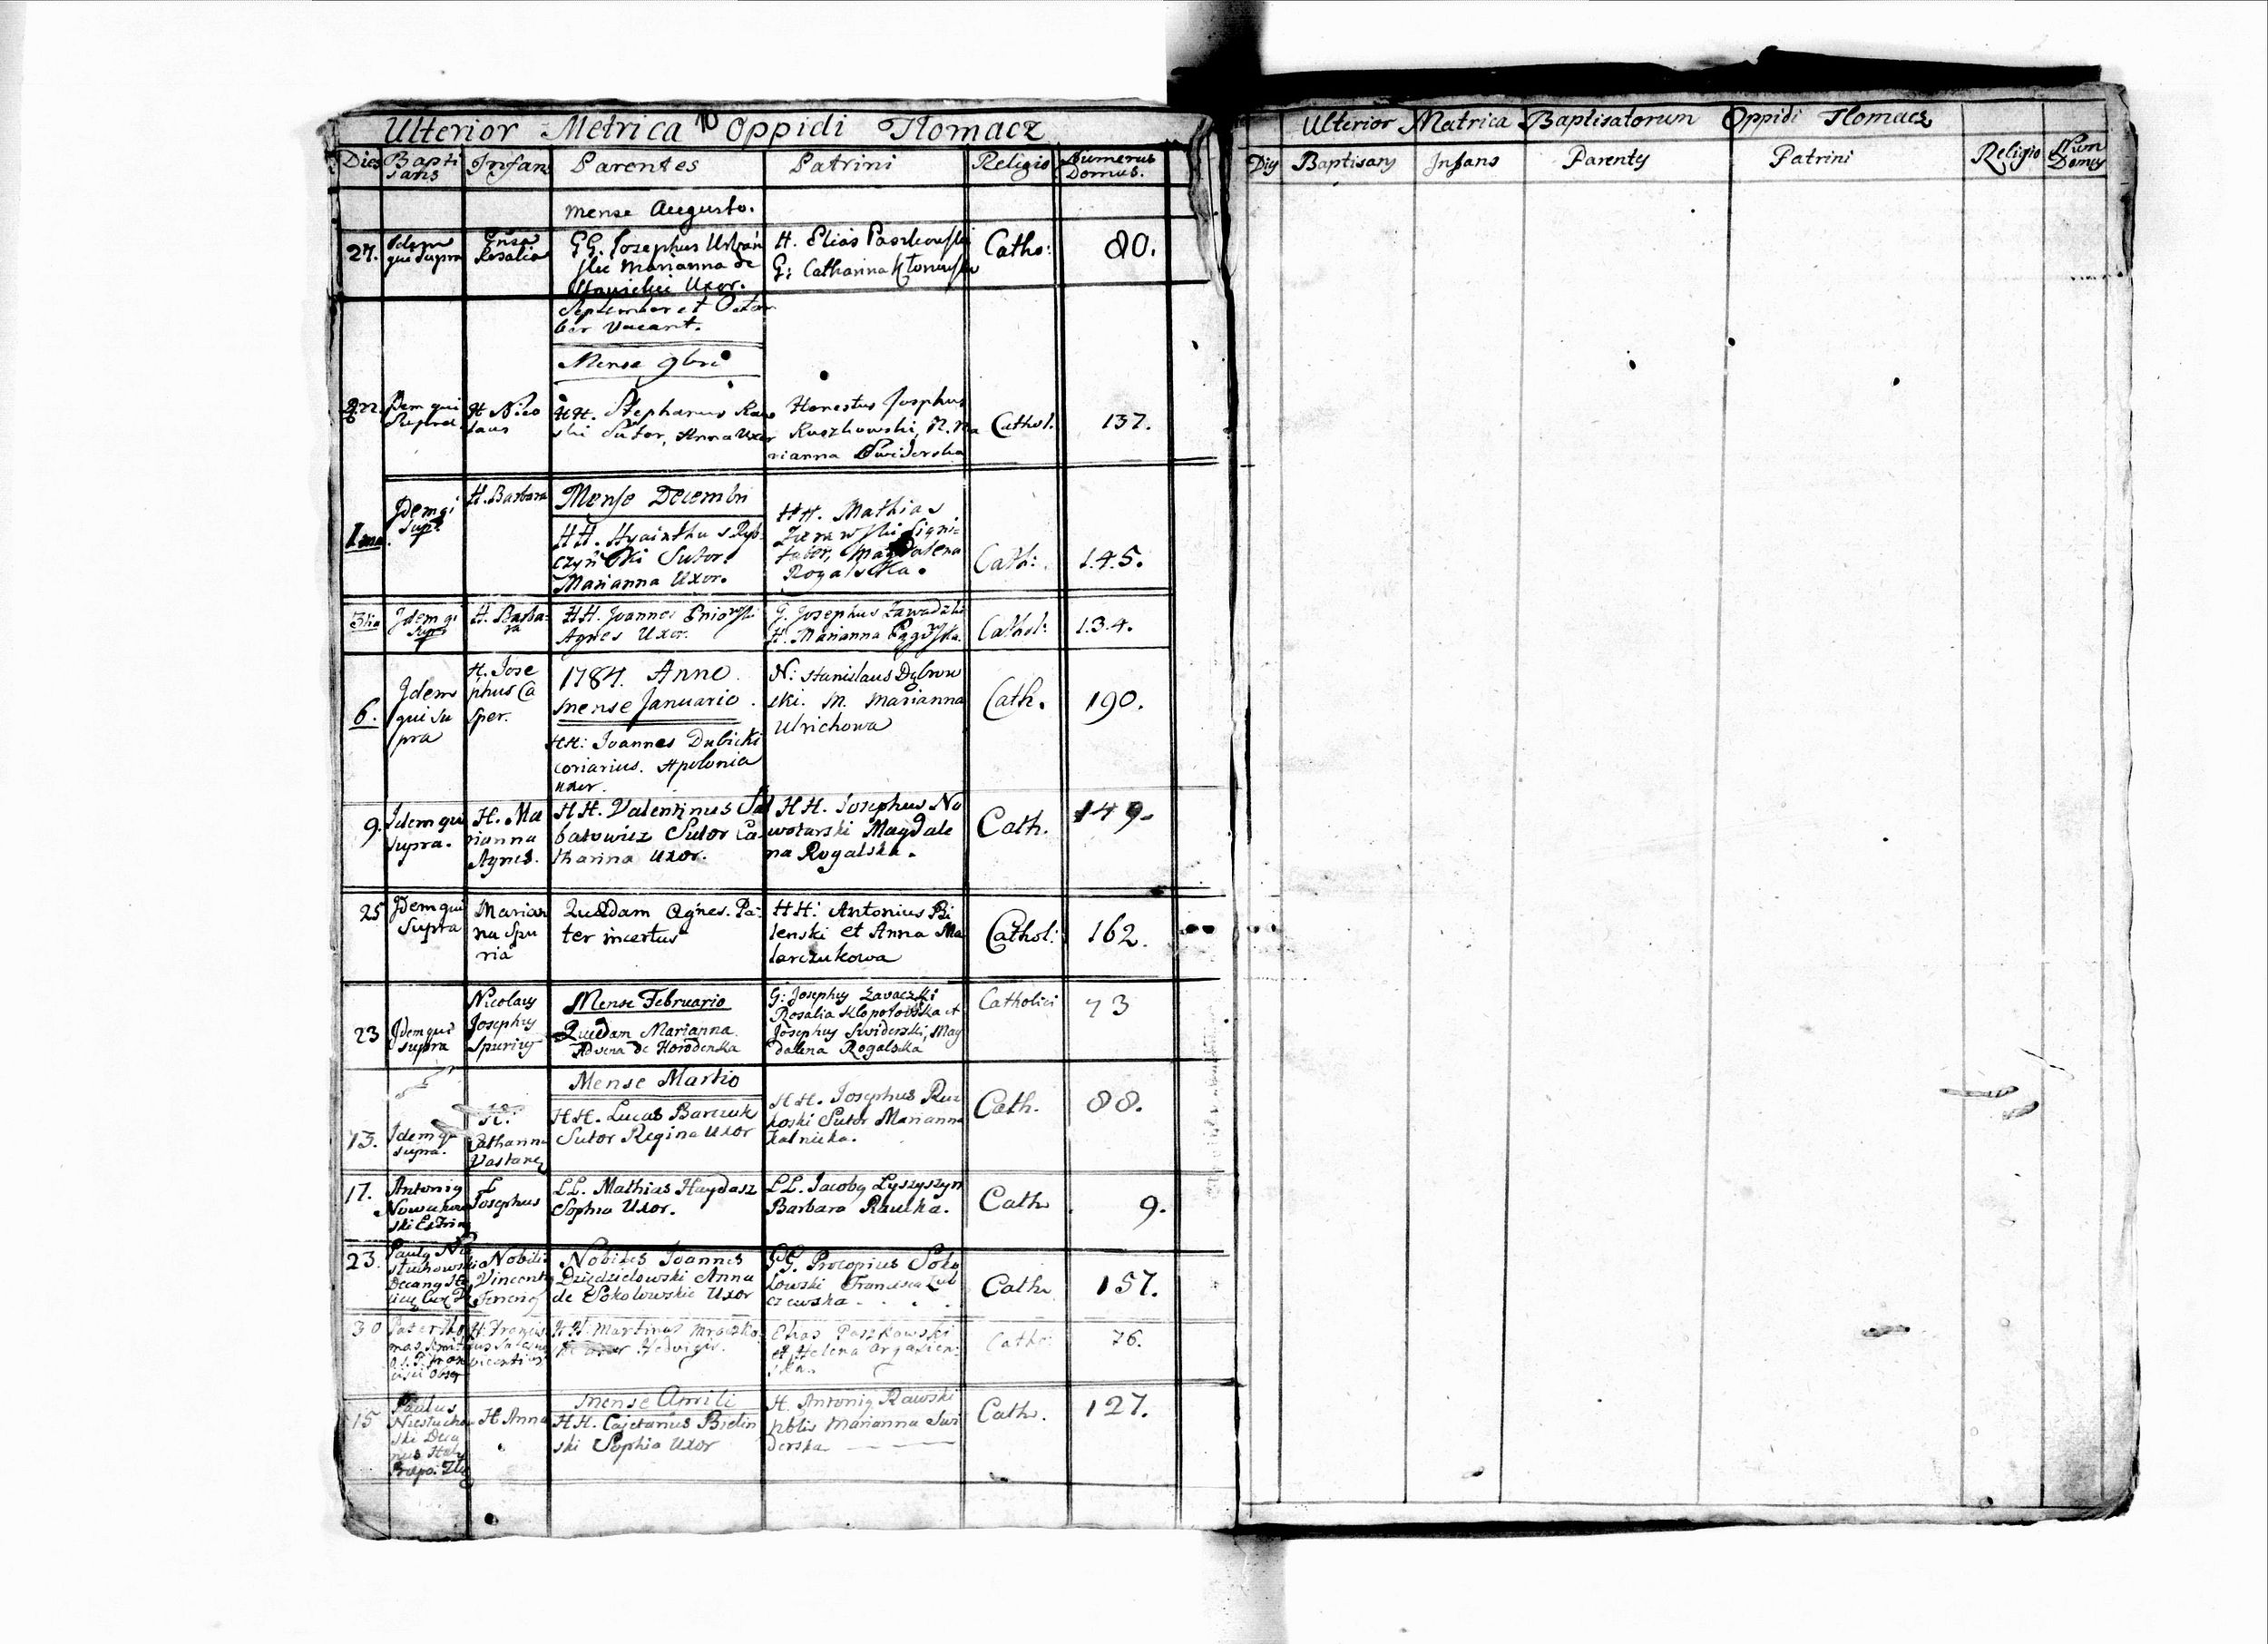 Ulterior Metrica Oppidi Tlomacz
10
Dies Bapti sans Infans Parentes Patrini Religio Numerus Domus.
mense Augusto.
27. Idem qui supra
Rosalia
GG. Josephus
Marianna de
Uxor.
H. Elias Paszkowski
G: Catharina
Catho:
80.
September et Octo
ber vacant.
Mense 9bri
22. Idem qui
Supra.
H Nico
laus
HH. Stephanus Raw
ski Sutor, Anna Uxor
Honestus Josephus
Ruszkowski, H. Ma
rianna Swiderska
Cathol.
137.
Mense Decembri
1ma. Idem qi
sup.
H. Barbara
HH. Hyainthus Ryb-
czyński Sutor.
Marianna Uxor.
HH. Mathias
Zurawski Ligni-
faber, Magdalena
Rogalska.
Cath:
1.4.5.
3tia Idem qi
supr
H. Barba-
ra
HH. Joannes
Agnes Uxor.
G. Josephus Zawadzki
H. Marianna
Cathol:
1.3.4.
1784. Anno
mense Januario.
6. Idem
qui su
pra
H. Jose
phus Ca
sper.
HH: Joannes Dubicki
coriarius. Apolonia
uxor.
N: Stanislaus Dąbrow
ski. M. Marianna
Ulrichowa
Cath.
190.
9. Idem qui
supra.
H. Ma
rianna
Agnes.
HH. Valentinus Sa
batowicz Sutor Ca-
tharina Uxor.
HH. Josephus No
wotarski Magdale
na Rogalska.
Cath.
149.
25 Idem qui
Supra
Marian
na Spu
ria
Quædam Agnes. Pa-
ter incertus
HH: Antonius Bi
lenski et Anna Ma
larczukowa
Cathol:
162.
Mense Februario
23 Idem qui
supra
Nicolaus
Josephus
Spurius
Quædam Marianna
Advena de Horodenka
G: Josephus Zavaczki
Rosalia Klopotowska et
Josephus Swiderski, Mag
dalena Rogalska
Catholici
73
Mense Martio
13. Idem qi
supra.
H.
Catharina
HH. Lucas Barczuk
Sutor Regina Uxor
HH. Josephus Rusz
koski Sutor Marianna
Kalnicka.
Cath.
88.
17. Antonius
Nowakow
ski
L
Josephus
LL. Mathias Haydasz
Sophia Uxor.
LL. Jacobus Lyszyszyn
Barbara
Cath
9.
23. Paulus
Decanus
Nobilis
Vincentius
Nobiles Joannes
Dzędzielowski Anna
de Sokolowskie Uxor
GG. Procopius Soko
lowski Francisca
czewska
Cath
157.
30 Pater Tho
mas
H. Francis
HH. Martinus
Hedvigis.
Elias Paszkowski
et Helena
ska.
Catho:
76.
mense Aprili
15 Paulus
Niestucho
ski Deca
nus
H Anna
HH. Cajetanus Bielin
ski Sophia Uxor
H. Antonius Rawski
Marianna Swi
derska
Cath.
127.
Ulterior Matrica Baptisatorum Oppidi Tlomacz
Dies Baptisans Infans Parentes Patrini Religio Num Domus